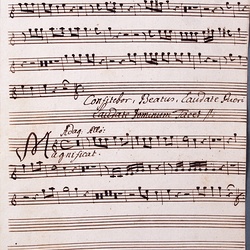 Confitebor, Beatus, Laudate Pueri
Laudate Dominum Tacet
Adag. Allo:
Magnificat.